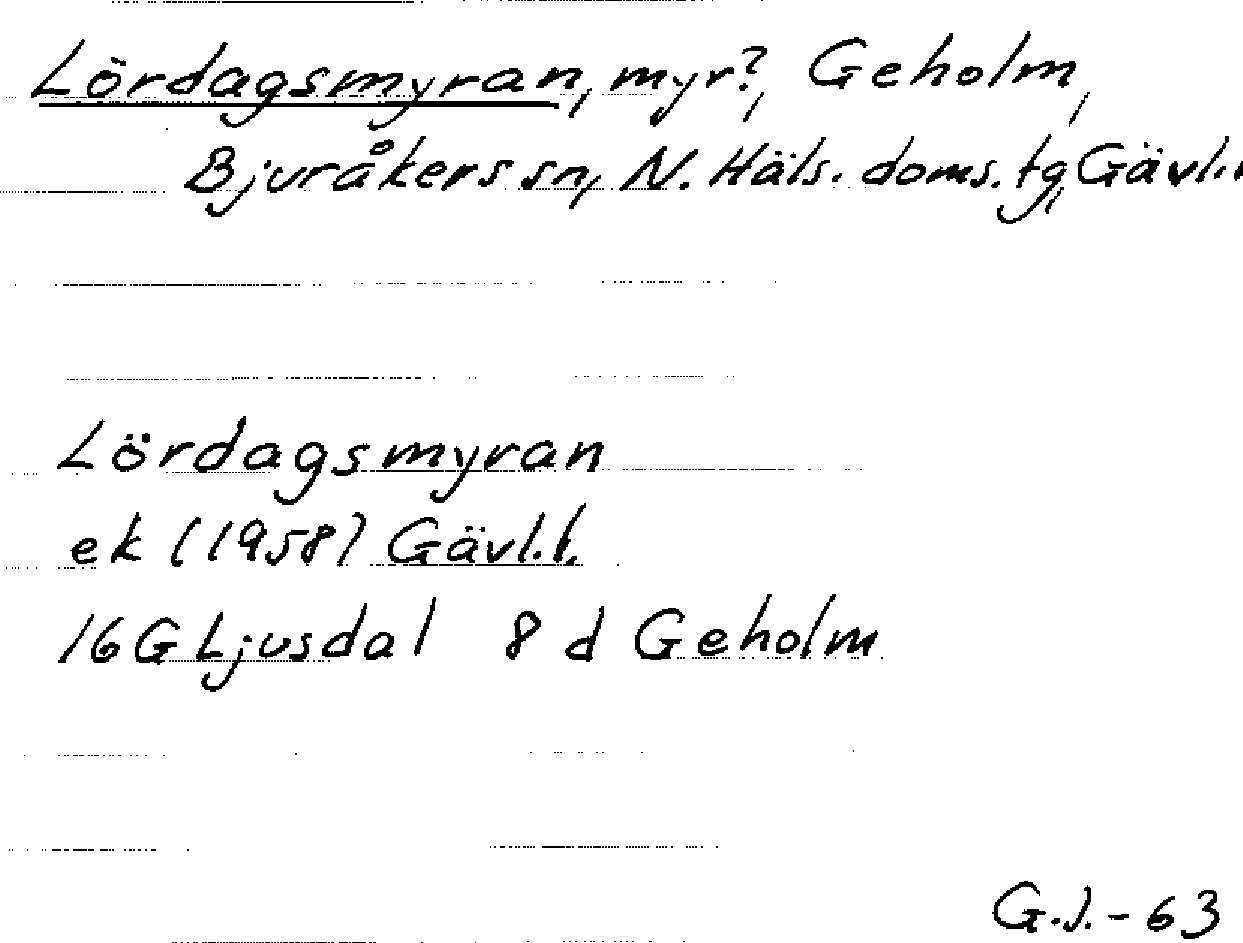 Lördagsmyran, myr?, Geholm,
Bjuråkers sn, N. Häls. doms. tg, Gävl.
Lördagsmyran
ek (1958) Gävl.l.
16G Ljusdal 8 d Geholm
G.J.-63